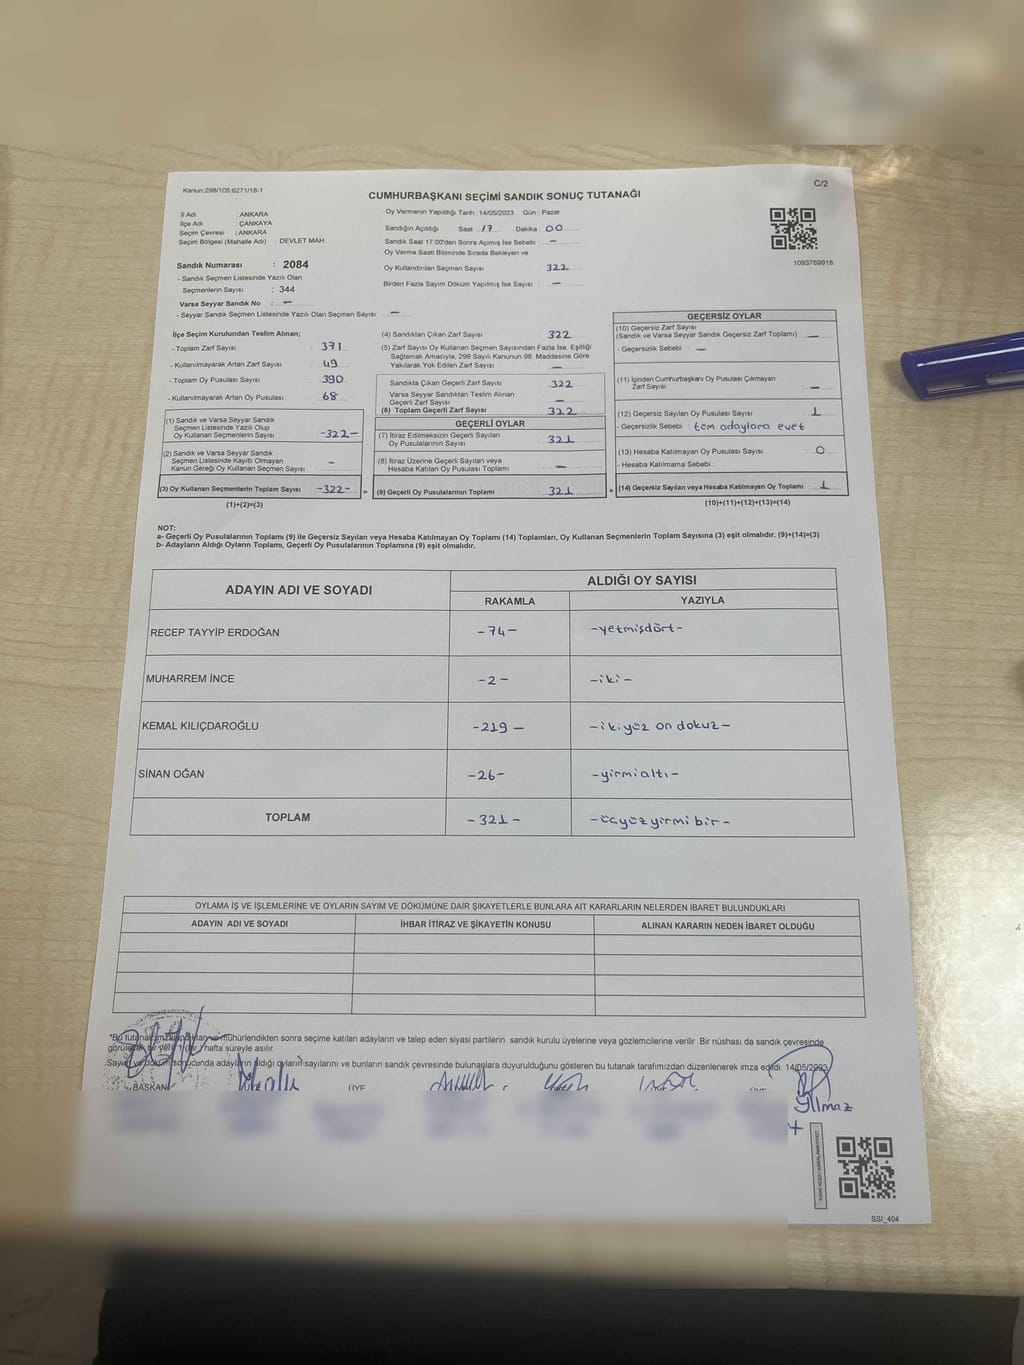 Kanun:298/105,6271/18-1
C/2
CUMHURBAŞKANI SEÇİMİ SANDIK SONUÇ TUTANAĞI
İl Adı : ANKARA
İlçe Adı : ÇANKAYA
Seçim Çevresi : ANKARA
Seçim Bölgesi (Mahalle Adı) : DEVLET MAH.
Sandık Numarası : 2084
- Sandık Seçmen Listesinde Yazılı Olan
Seçmenlerin Sayısı : 344
Varsa Seyyar Sandık No : —
- Seyyar Sandık Seçmen Listesinde Yazılı Olan Seçmen Sayısı: —
Oy Vermenin Yapıldığı Tarih : 14/05/2023 Gün : Pazar
Sandığın Açıldığı Saat 17 Dakika : 00
Sandık Saat 17:00'den Sonra Açımış İse Sebebi : —
Oy Verme Saati Bitiminde Sırada Bekleyen ve
Oy Kullandırılan Seçmen Sayısı 322
Birden Fazla Sayım Döküm Yapılmış İse Sayısı : —
1093769918
İlçe Seçim Kurulundan Teslim Alınan;
- Toplam Zarf Sayısı : 371
- Kullanılmayarak Artan Zarf Sayısı : 49
- Toplam Oy Pusulası Sayısı : 390
- Kullanılmayarak Artan Oy Pusulası : 68
(1) Sandık ve Varsa Seyyar Sandık
Seçmen Listesinde Yazılı Olup
Oy Kullanan Seçmenlerin Sayısı -322-
(2) Sandık ve Varsa Seyyar Sandık
Seçmen Listesinde Kayıtlı Olmayan
Kanun Gereği Oy Kullanan Seçmen Sayısı —
(3) Oy Kullanan Seçmenlerin Toplam Sayısı -322- =
(1)+(2)=(3)
(4) Sandıktan Çıkan Zarf Sayısı 322
(5) Zarf Sayısı Oy Kullanan Seçmen Sayısından Fazla İse, Eşitliği
Sağlamak Amacıyla, 298 Sayılı Kanunun 98. Maddesine Göre
Yakılarak Yok Edilen Zarf Sayısı —
Sandıkta Çıkan Geçerli Zarf Sayısı 322
Varsa Seyyar Sandıktan Teslim Alınan
Geçerli Zarf Sayısı —
(6) Toplam Geçerli Zarf Sayısı 322
GEÇERLİ OYLAR
(7) İtiraz Edilmeksizin Geçerli Sayılan
Oy Pusulalarının Sayısı 321
(8) İtiraz Üzerine Geçerli Sayılan veya
Hesaba Katılan Oy Pusulası Toplamı —
(9) Geçerli Oy Pusulalarının Toplamı 321 +
GEÇERSİZ OYLAR
(10) Geçersiz Zarf Sayısı
(Sandık ve Varsa Seyyar Sandık Geçersiz Zarf Toplamı) —
- Geçersizlik Sebebi : —
(11) İçinden Cumhurbaşkanı Oy Pusulası Çıkmayan
Zarf Sayısı —
(12) Geçersiz Sayılan Oy Pusulası Sayısı : 1
- Geçersizlik Sebebi : tüm adaylara evet
(13) Hesaba Katılmayan Oy Pusulası Sayısı 0
- Hesaba Katılmama Sebebi :
(14) Geçersiz Sayılan veya Hesaba Katılmayan Oy Toplamı 1
(10)+(11)+(12)+(13)=(14)
NOT:
a- Geçerli Oy Pusulalarının Toplamı (9) ile Geçersiz Sayılan veya Hesaba Katılmayan Oy Toplamı (14) Toplamları, Oy Kullanan Seçmenlerin Toplam Sayısına (3) eşit olmalıdır. (9)+(14)=(3)
b- Adayların Aldığı Oyların Toplamı, Geçerli Oy Pusulalarının Toplamına (9) eşit olmalıdır.
ADAYIN ADI VE SOYADI
ALDIĞI OY SAYISI
RAKAMLA YAZIYLA
RECEP TAYYİP ERDOĞAN -74- -yetmişdört-
MUHARREM İNCE -2- -iki-
KEMAL KILIÇDAROĞLU -219- -ikiyüz on dokuz-
SİNAN OĞAN -26- -yirmialtı-
TOPLAM -321- -üçyüzyirmi bir-
OYLAMA İŞ VE İŞLEMLERİNE VE OYLARIN SAYIM VE DÖKÜMÜNE DAİR ŞİKAYETLERLE BUNLARA AİT KARARLARIN NELERDEN İBARET BULUNDUKLARI
ADAYIN ADI VE SOYADI İHBAR İTİRAZ VE ŞİKAYETİN KONUSU ALINAN KARARIN NEDEN İBARET OLDUĞU
*Bu mühürlendikten sonra seçime katılan adayların ve talep eden siyasi partilerin sandık kurulu üyelerine veya gözlemcilerine verilir .Bir nüshası da sandık çevresinde
bir yere 1 hafta süreyle asılır.
sonucunda adayların aldığı oyların sayılarını ve bunların sandık çevresinde bulunanlara duyurulduğunu gösteren bu tutanak tarafımızdan düzenlenerek imza edildi. 14/05/2023
BAŞKAN ÜYE
Yılmaz
SSI_404